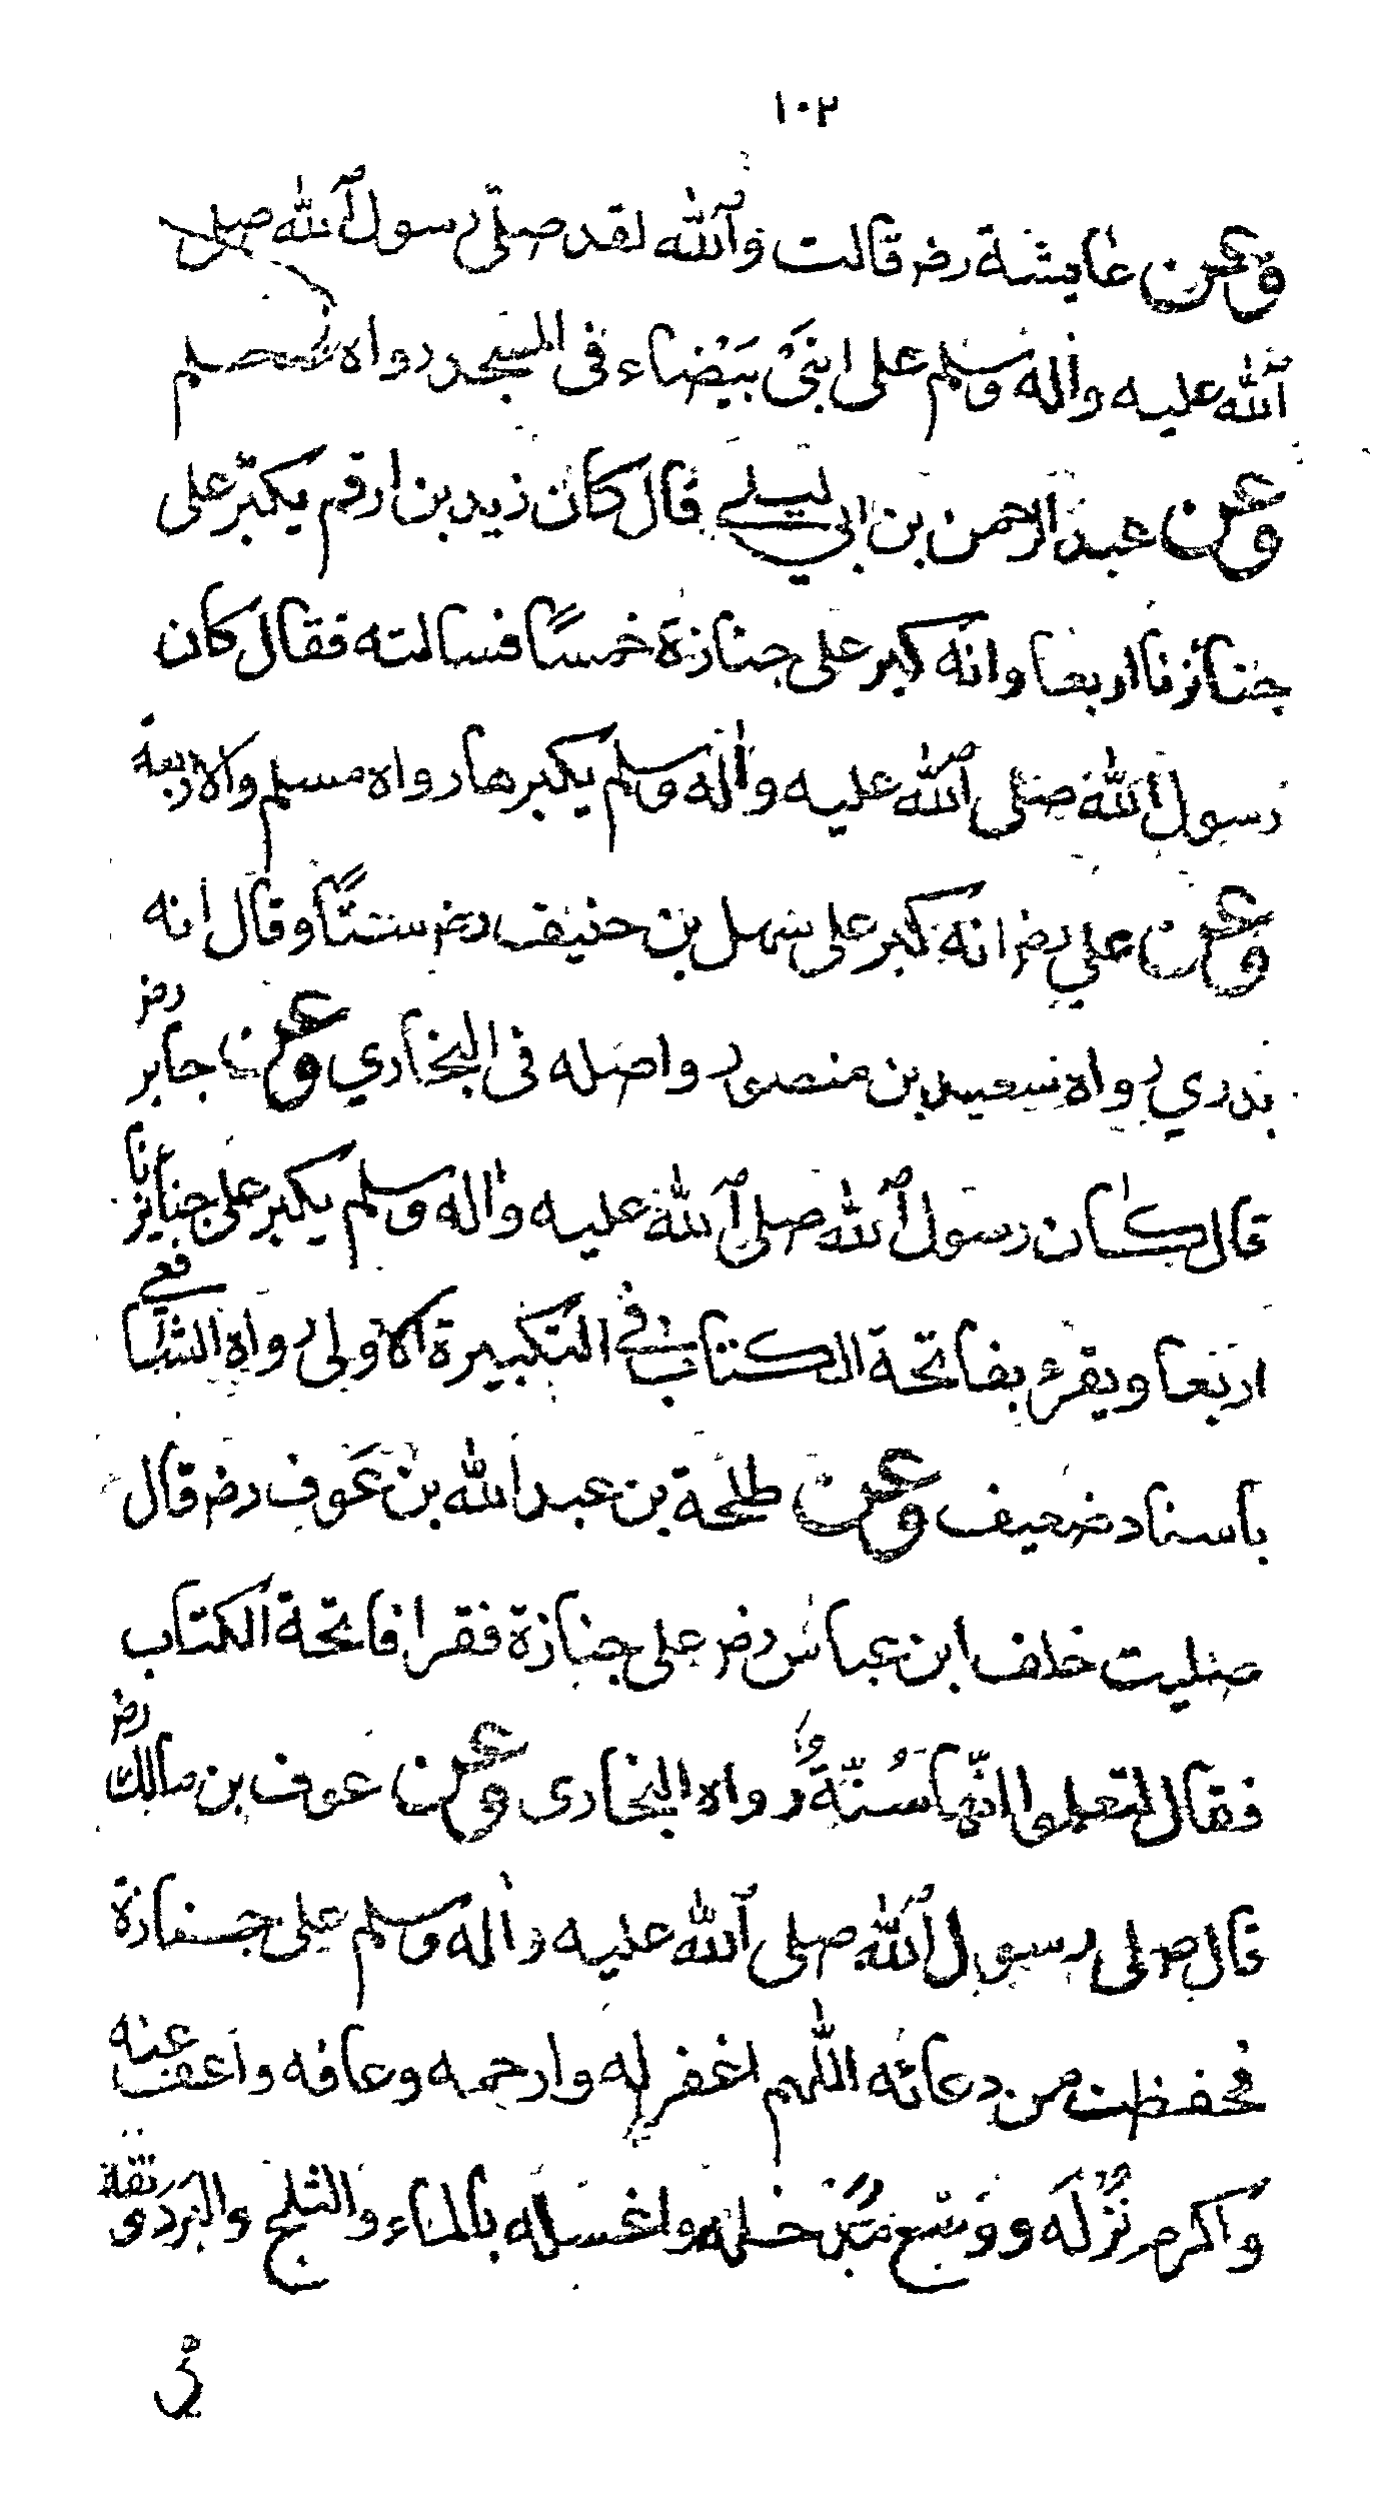 ١٠٢
وعن عايشة رضر قالت والله لقد صلى رسول الله صلى
الله عليه واله وسلم على ابنَيْ بَيْضاء فى المسجد رواه مسلم
وعن عبد الرحمن بن ابي ليلى قال كان زيد بن ارقم يكبّر على
جنائزنا اربعا وانه كبر على جنازة خمسًا فسالته فقال كان
رسول الله صلى الله عليه واله وسلم يكبرها رواه مسلم والاربعة
وعن علي رضر انه كبر على سهل بن حنيف رضر ستًّا وقال انه
بدري رواه سعيد بن منصور واصله فى البخاري وعن جابر رضر
قال كان رسول الله صلى الله عليه واله وسلم يكبر على جنايزنا
اربعا ويقرء بفاتحة الكتاب فى التكبيرة الاولى رواه الشافعي
باسناد ضعيف وعن طلحة بن عبد الله بن عَوف رضر قال
صليت خلف ابن عباس رضر على جنازة فقرا فاتحة الكتاب
فقال لتعلموا انّها سُنّةٌ رواه البخارى وعن عوف بن مالك رضر
قال صلى رسول الله صلى الله عليه واله وسلم على جنازة
فحفظت من دعائه اللهم اغفر له وارحمه وعافه واعف عنه
واكرم نُزُلَه ووَسّع مُدْخله واغسله بالماء والثلج والبَرَد ونقه